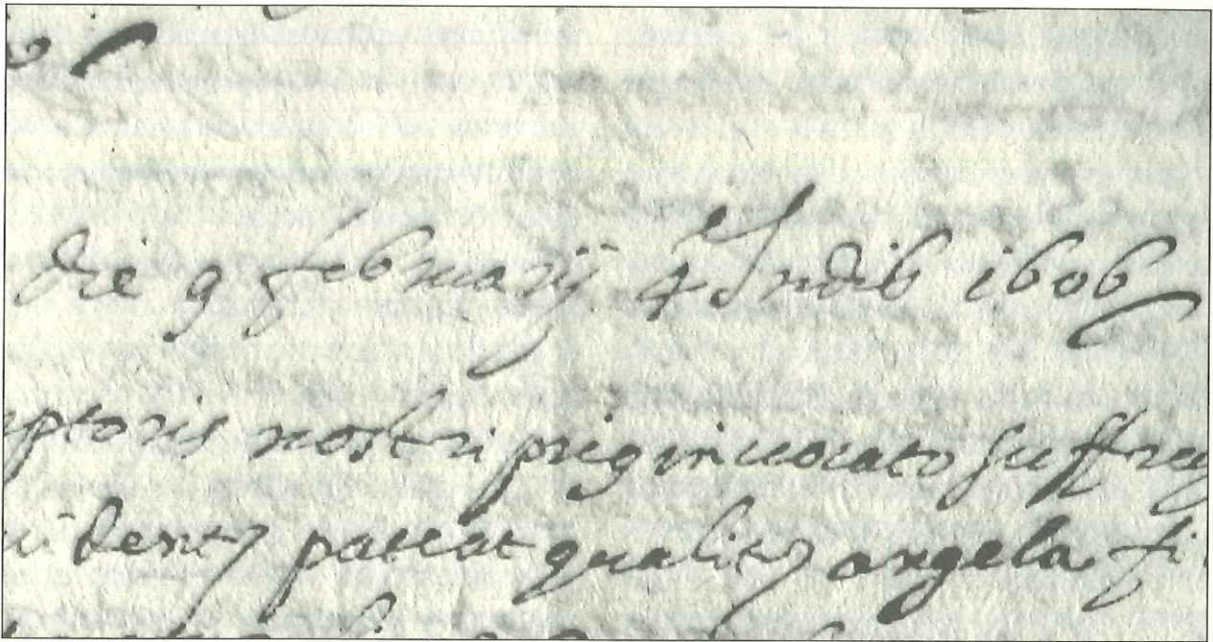 die 9 februarij 4e Indib 1606
ptoris nostri prig invocato suffrag
videnter pateat qualiter angela fi